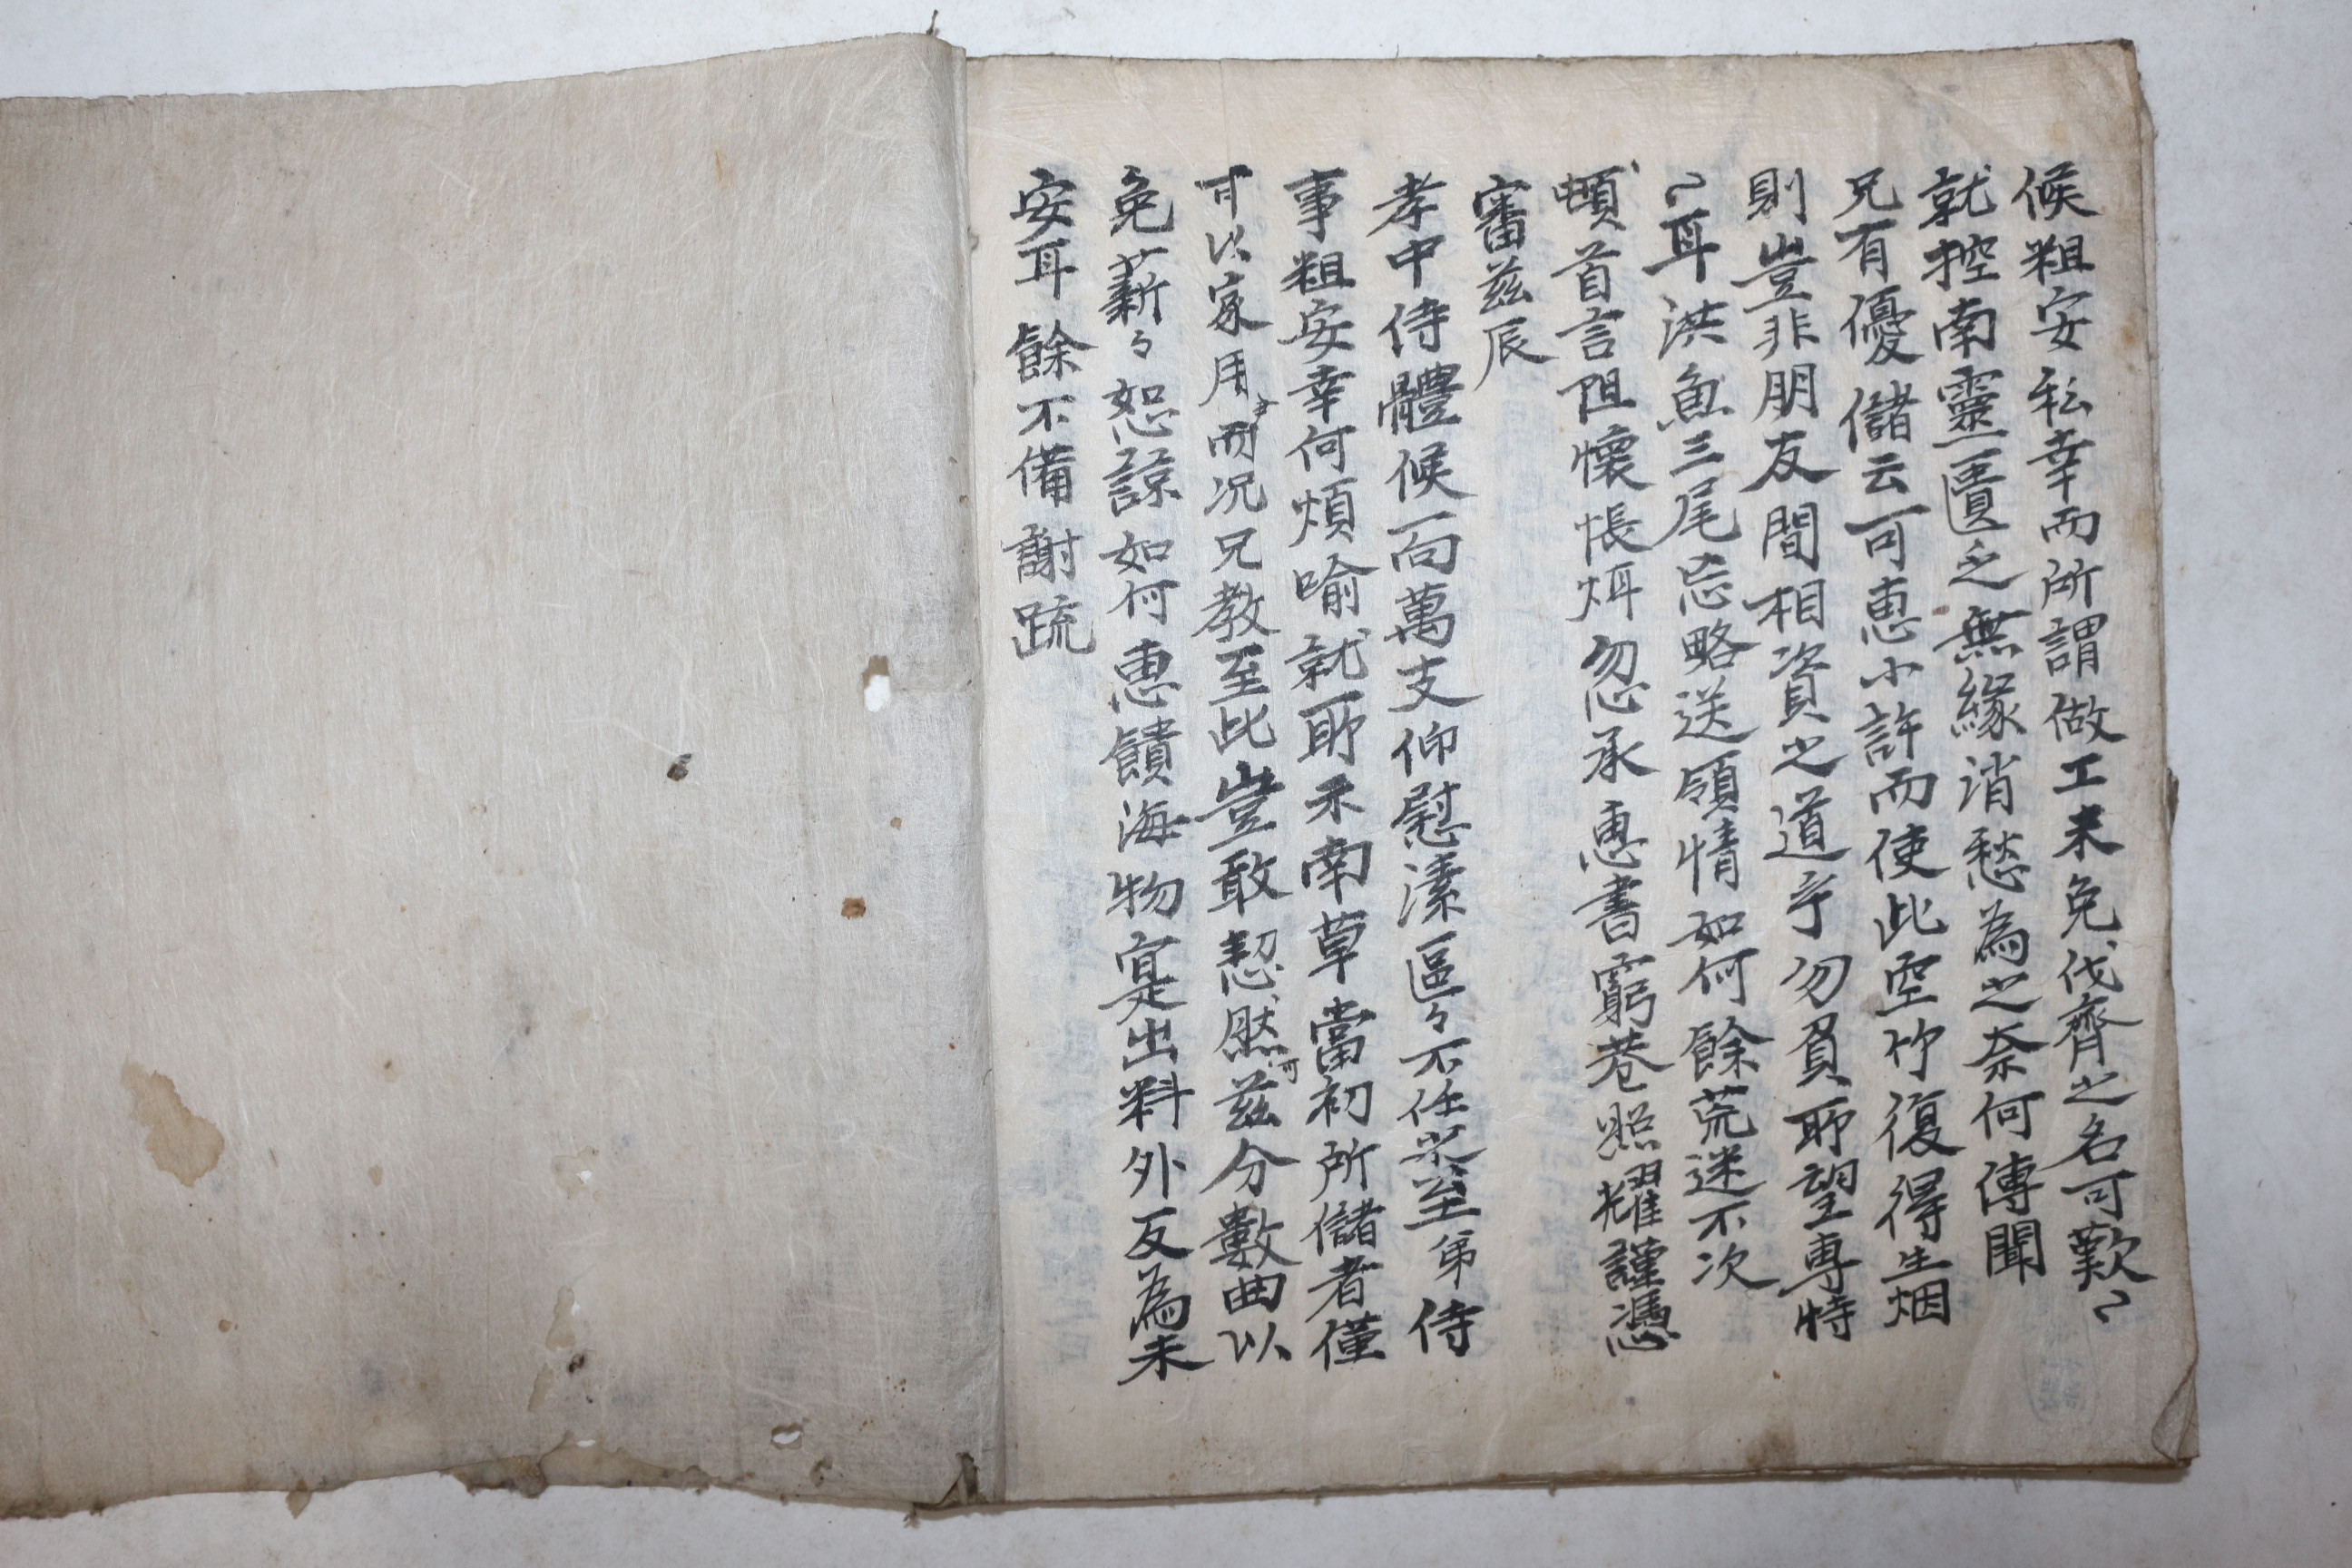 候粗安私幸而所謂做工未免伐齊之名可歎〻
就控南靈匱乏無緣消愁為之奈何傳聞
兄有優儲云可惠小許而使此空竹復得生烟
則豈非朋友間相資之道乎勿負所望專恃
〻耳洪魚三尾忘略送領情如何餘荒迷不次
頓首言阻懷悵炳忽承惠書窮巷照耀謹憑
審茲辰
孝中侍體候一向萬支仰慰溱區々不任至弟侍
事粗安幸何煩喻就所示南草當初所儲者僅
可以家用而况兄教至此豈敢恝然茲分數曲以
免薪々恕諒如何惠饋海物寔出料外反為未
安耳餘不備謝疏